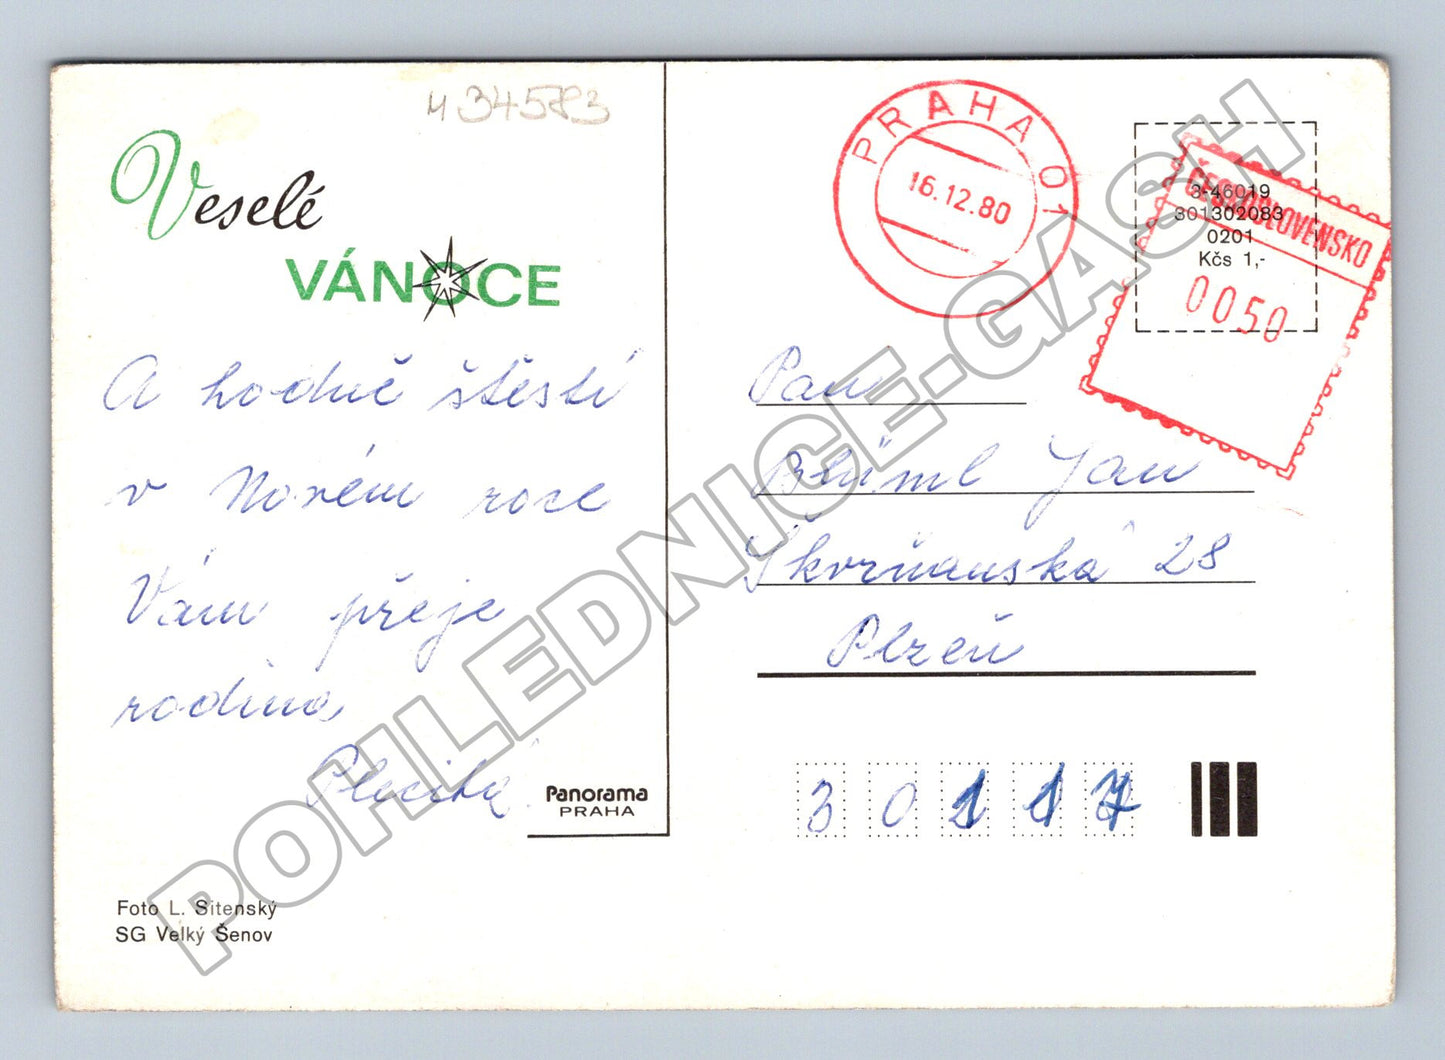 4 34583
Veselé
VÁNOCE
A hodně štěstí
v Novém roce
Vám přeje
rodina
Plecitá
Panorama
PRAHA
Foto L. Sitenský
SG Velký Šenov
PRAHA 01
16.12.80
3-46019
301302083
0201
Kčs 1,-
ČESKOSLOVENSKO
0050
Pan
Blüml Jan
Škvrňanská 28
Plzeň
30117
POHLEDNICE-GASH